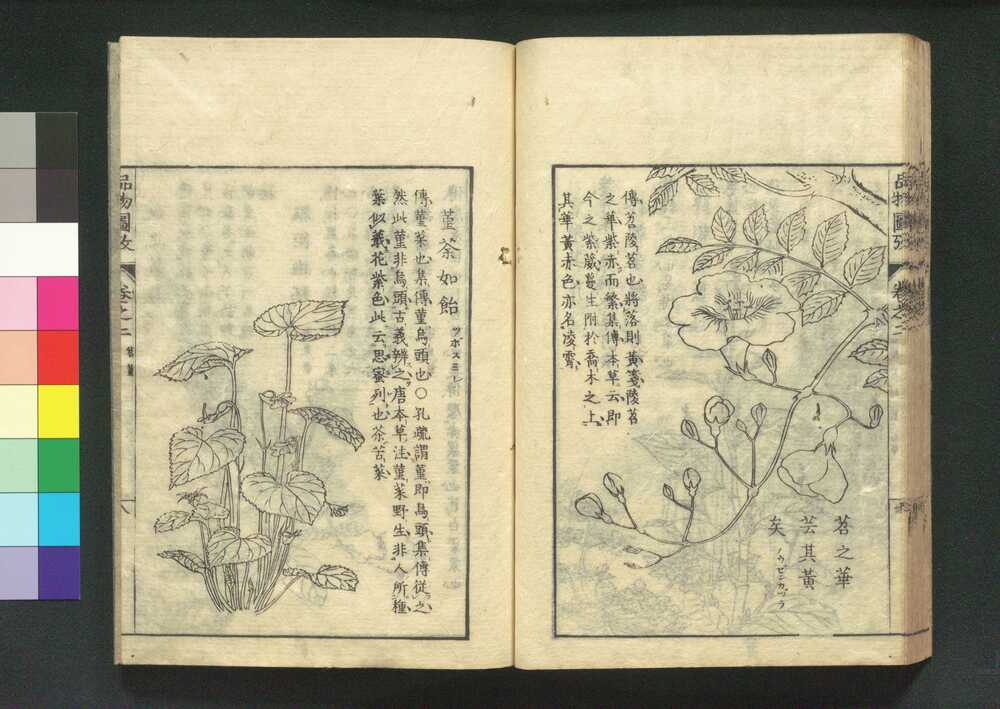 品物圖攷
卷之二
苕之華
芸其黃
矣
ノウゼンカヅラ
傳苕陵苕也將落則黃箋陵苕
之華紫赤而繁集傳本草云即
今之紫葳蔓生附於喬木之上
其華黃赤色亦名凌霄
堇荼如飴
ツボスミレ
傳堇菜也集傳堇烏頭也〇孔疏謂堇即烏頭集傳從之
然此堇非烏頭古義辨之唐本草注堇菜野生非人所種
葉似蕺花紫色此云思蜜列也荼苦菜
品物圖攷
卷之二
八